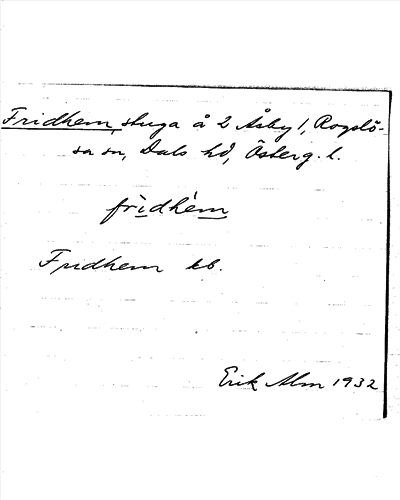 Fridhem, stuga å 2 Åsby 1, Rogslö-
sa sn, Dals hd, Österg. l.
frìdhém
Fridhem kb.
Erik Alm 1932